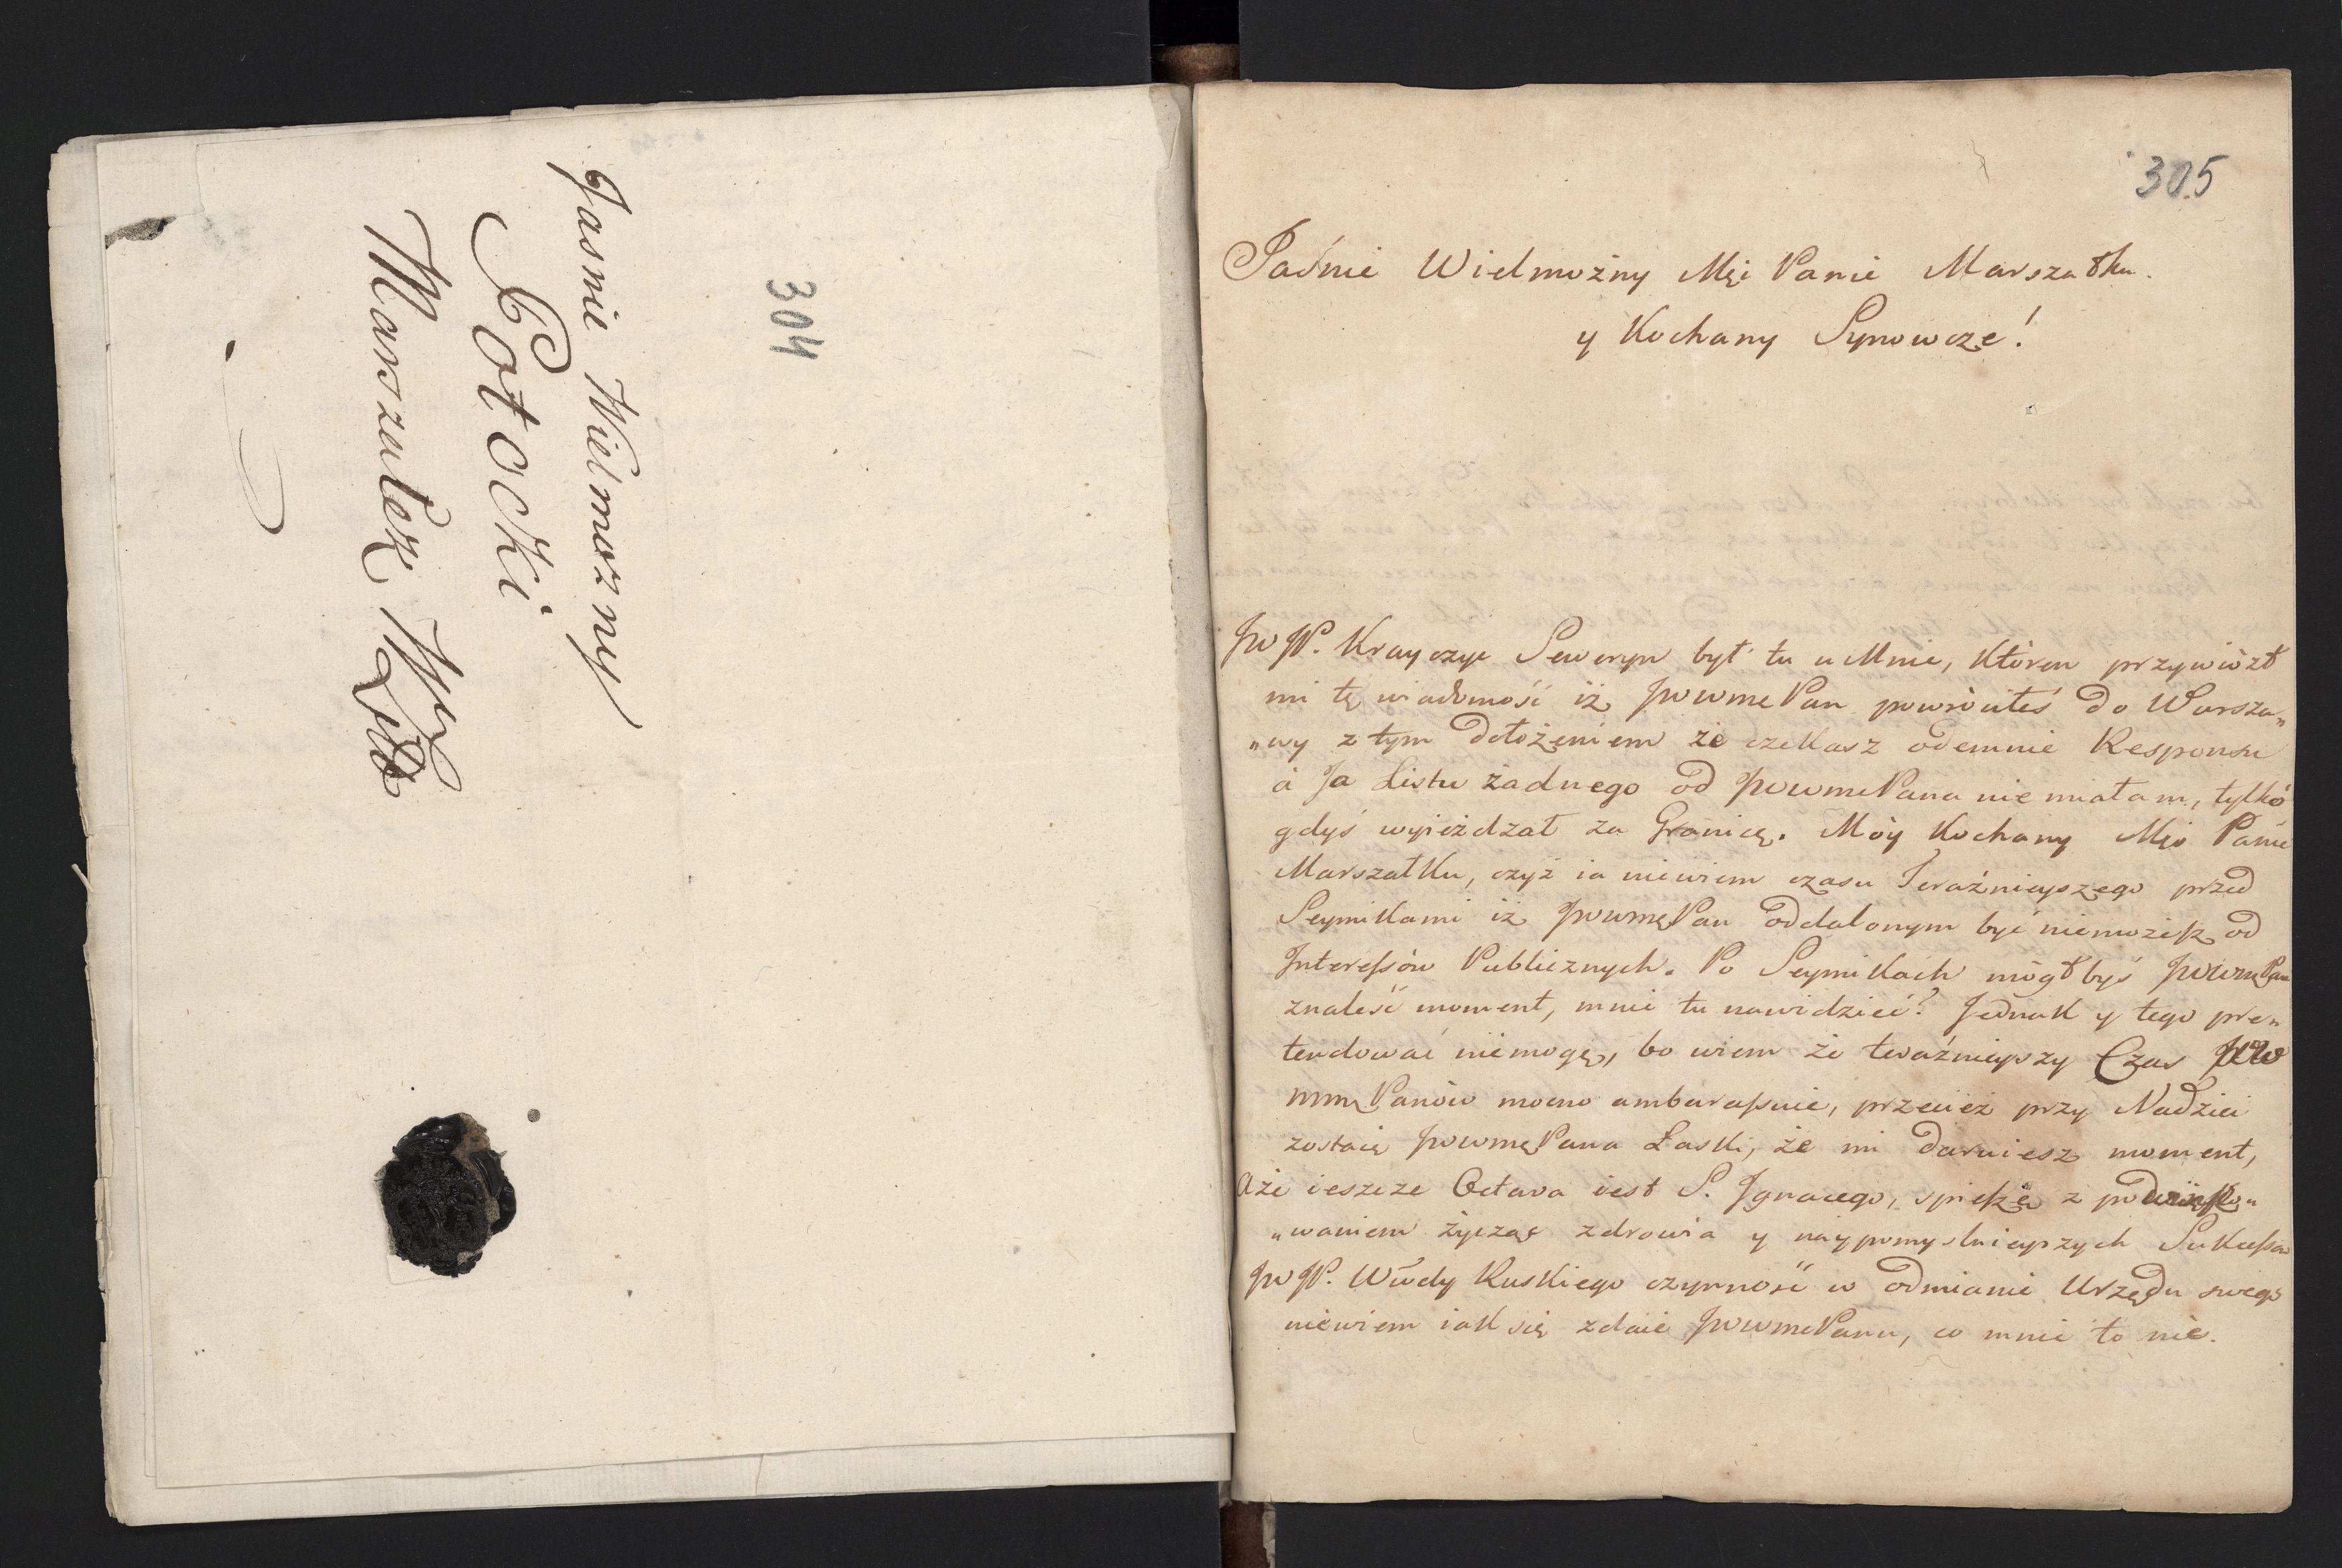 304
Jasnie Wielmozny
Potocki
Marszalek WXLitt
305
Jaśnie Wielmożny Mći Panie Marszałku.
y Kochany Synowcze!
JW JP. Krayczyc Seweryn był tu u Mnie, Któren przywiózł
mi tę wiadomość iż JWWMć Pan powróciłeś do Warsza„
„wy z tym dołożeniem że czekasz odemnie Responsu
a Ja Listu żadnego od JWWMć Pana nie miałam, tylko
gdyś wyieżdzał za Granicę. Móy Kochany Mćo Panie
Marszałku, czyż ia niewiem czasu Teraźnieyszego przed
Seymikami iż JWWMć Pan oddalonym być niemożesz od
Interessów Publicznych. Po Seymikach mógłbyś JWWMć Pan
znaleść moment, mnie tu nawidzieć? Jednak y tego pre„
tendować niemogę, bo wiem że teraźnieyszy Czas JWW
mm Panów mocno ambarassuie, przecież przy Nadziei
zostaię JWWMć Pana Łaski, że mi daruiesz moment,
Aże ieszcze Octava iest S. Ignacego, spieszę z powinszo„
„waniem życząc zdrowia y naypomyslnieyszych Sukcessów
JW JP. Wwdy Ruskiego czynność w odmianie Urzędu swego
niewiem iak się zdaie JWWMć Panu, co mnie to nie.